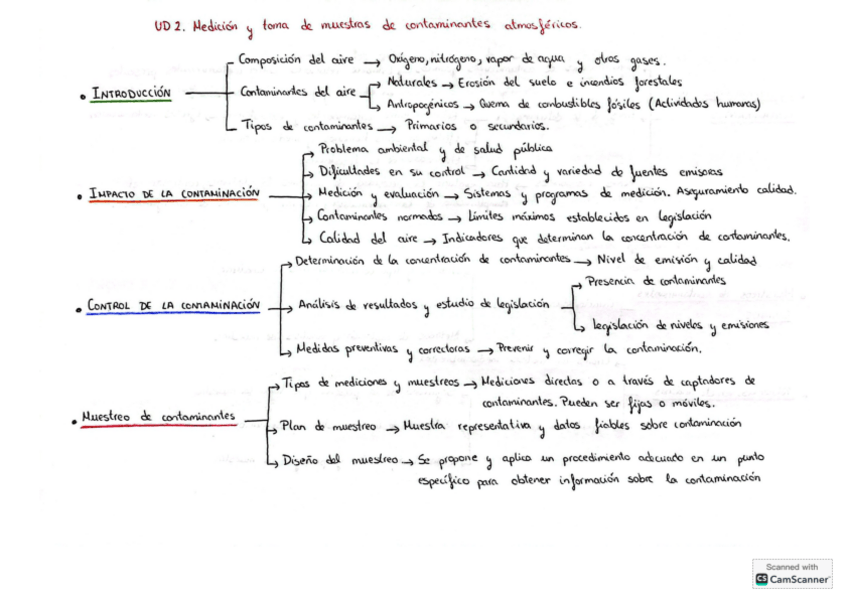 UD 2. Medición y toma de muestras de contaminantes atmosféricos.
Composición del aire → Oxígeno, nitrógeno, vapor de agua y otros gases.
• INTRODUCCIÓN
Contaminantes del aire
Naturales → Erosión del suelo e incendios forestales
Antropogénicos → Quema de combustibles fósiles (Actividades humanas)
Tipos de contaminantes → Primarios o secundarios.
Problema ambiental y de salud pública
Dificultades en su control → Cantidad y variedad de fuentes emisoras
• IMPACTO DE LA CONTAMINACIÓN
Medición y evaluación → Sistemas y programas de medición. Aseguramiento calidad.
Contaminantes normados → Límites máximos establecidos en legislación
Calidad del aire → Indicadores que determinan la concentración de contaminantes.
Determinación de la concentración de contaminantes → Nivel de emisión y calidad
Presencia de contaminantes
• CONTROL DE LA CONTAMINACIÓN
Análisis de resultados y estudio de legislación
legislación de niveles y emisiones
Medidas preventivas y correctoras → Prevenir y corregir la contaminación.
Tipos de mediciones y muestreos → Mediciones directas o a través de captadores de
contaminantes. Pueden ser fijas o móviles.
• Muestreo de contaminantes
Plan de muestreo → Muestra representativa y datos fiables sobre contaminación
Diseño del muestreo → Se propone y aplica un procedimiento adecuado en un punto
específico para obtener información sobre la contaminación
Scanned with
CS CamScanner